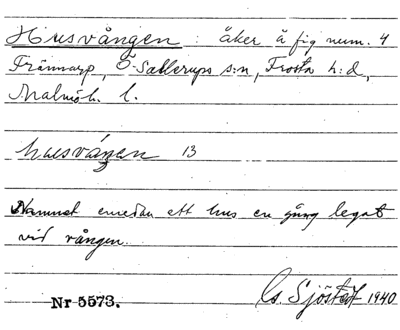 Husvången : åker å fig num. 4
Frännarp, Ö. Sallerups s:n, Frosta h:d,
Malmöh. l.
husváŋen 13
Namnet emedan ett hus en gång legat
vid vången.
Nr 5573.
Cs. Sjöstedt 1940